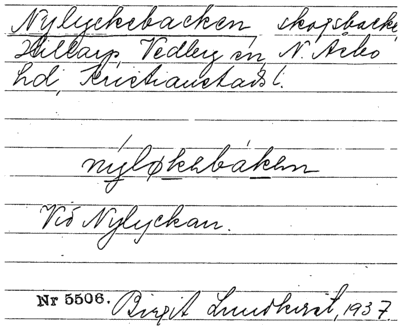 Nylyckebacken, skogsbacke,
Hillarp, Vedby sn, N. Åsbo
hd, Kristianstads l.
nýløkebákən
Vid Nylyckan.
Nr 5506. Birgit Lundkvist, 1937.